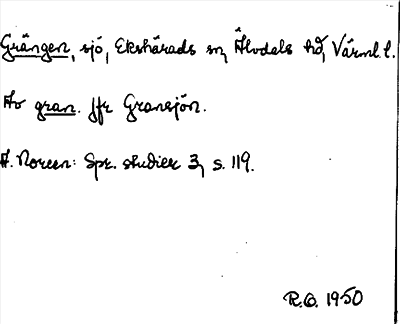 Grängen, sjö, Ekshärads sn, Älvdals hd, Värml. l.
Av gran. Jfr Gransjön.
A. Noreen: Spr. studier 3, s. 119.
R.O. 1950